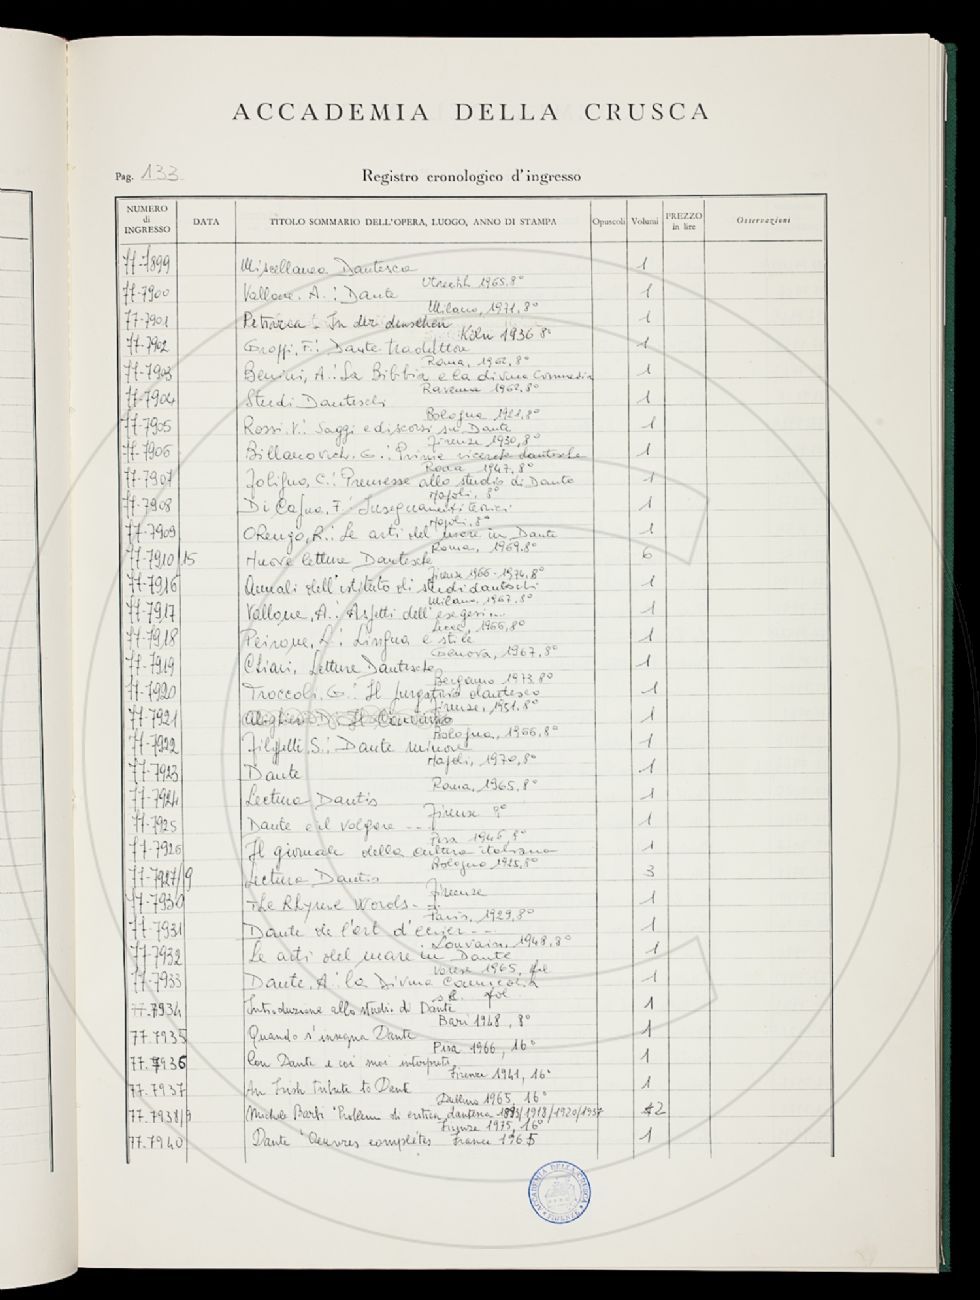 ACCADEMIA DELLA CRUSCA
Pag. 133
Registro cronologico d'ingresso
NUMERO di INGRESSO DATA TITOLO SOMMARIO DELL'OPERA, LUOGO, ANNO DI STAMPA Opuscoli Volumi PREZZO in lire Osservazioni
77-7899 Miscellanea Dantesca 1
Utrecht 1965, 8°
77-7900 Vallone, A.: Dante 1
Milano, 1971, 8°
77-7901 Petrarca: In der deutschen 1
Köln 1936 8°
77-7902 Groppi, F.: Dante traduttore 1
Roma, 1962, 8°
77-7903 Benini, A.: La Bibbia e la divina Commedia 1
Ravenna 1962, 8°
77-7904 Studi Danteschi 1
Bologna 1921, 8°
77-7905 Rossi, V.: Saggi e discorsi su Dante 1
Firenze 1930, 8°
77-7906 Billanovich, G.: Prime ricerche dantesche 1
Roma 1947, 8°
77-7907 Foligno, C.: Premesse allo studio di Dante 1
Napoli, 8°
77-7908 Di Capua, F.: Insegnamenti 1
Napoli, 8°
77-7909 Orengo, R.: Le arti del mare in Dante 1
Roma, 1969, 8°
77-7910/15 Nuove letture Dantesche 6
Firenze 1966-1974, 8°
77-7916 Annali dell'istituto di studi danteschi 1
Milano, 1967, 8°
77-7917 Vallone, A.: Aspetti dell'esegesi... 1
Lecce, 1966, 8°
77-7918 Peirone, L.: Lingua e stile 1
Genova, 1967, 8°
77-7919 Chiari, Letture Dantesche 1
Bergamo 1973, 8°
77-7920 Troccoli, G.: Il purgatorio dantesco 1
Firenze, 1951, 8°
77-7921 Alighieri D.: Il Convivio 1
Bologna, 1966, 8°
77-7922 S.: Dante minore 1
Napoli, 1970, 8°
77-7923 Dante 1
Roma, 1965, 8°
77-7924 Lectura Dantis 1
Firenze 8°
77-7925 Dante e il volgare --- 1
Pisa 1946, 8°
77-7926 Il giornale della cultura italiana 1
Bologna 1925, 8°
77-7927/9 Lectura Dantis 3
Firenze
77-7930 The Rhyme Words - 1
Paris, 1929, 8°
77-7931 Dante de l'art d'écrier -- 1
Louvain, 1948, 8°
77-7932 Le arti del mare in Dante 1
Varese 1965, fol
77-7933 Dante, A.: la Divina Commedia 1
s.d. fol
77-7934 Introduzione allo studio di Dante 1
Bari 1948, 8°
77.7935 Quando s'insegna Dante 1
Pisa 1966, 16°
77.7936 Con Dante e coi suoi interpreti 1
Firenze 1941, 16°
77.7937 An Irish tribute to Dante 1
Dublino 1965, 16°
77.7938/9 Michele Barbi Problemi di critica dantesca 1893/1918/1920/1937 2
Firenze 1975, 16°
77.7940 Dante Oeuvres complètes France 1965 1
ACCADEMIA DELLA CRUSCA
FIRENZE